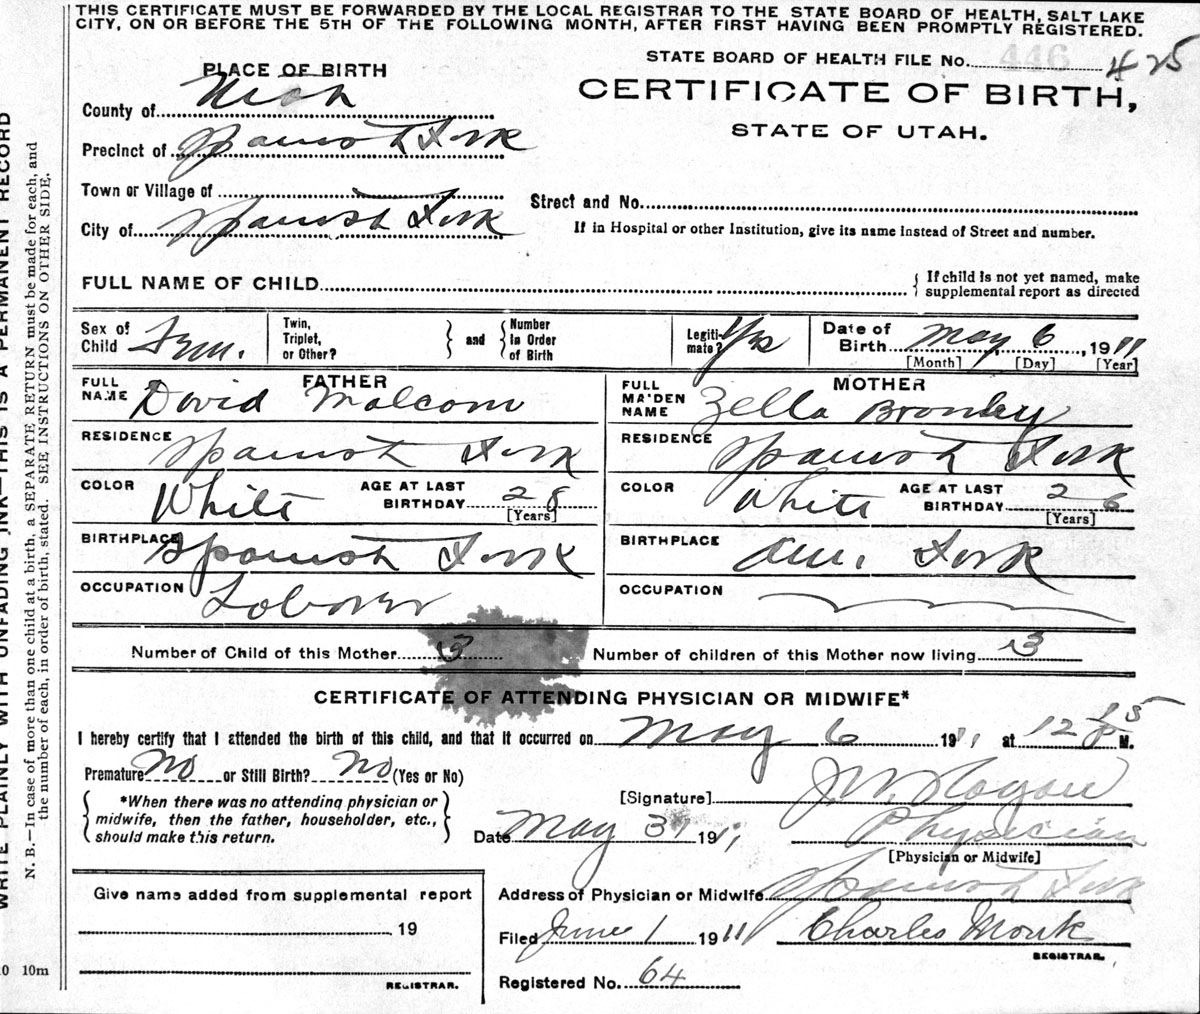 THIS CERTIFICATE MUST BE FORWARDED BY THE LOCAL REGISTRAR TO THE STATE BOARD OF HEALTH, SALT LAKE
CITY, ON OR BEFORE THE 5TH OF THE FOLLOWING MONTH, AFTER FIRST HAVING BEEN PROMPTLY REGISTERED.
STATE BOARD OF HEALTH FILE No. 446 425
PLACE OF BIRTH
CERTIFICATE OF BIRTH,
STATE OF UTAH.
County of
Precinct of Spanish Fork
Town or Village of
Street and No.
City of Spanish Fork
If in Hospital or other Institution, give its name instead of Street and number.
FULL NAME OF CHILD
If child is not yet named, make
supplemental report as directed
Sex of Child Fem.
Twin, Triplet, or Other?
and
Number in Order of Birth
Legiti-mate? Yes
Date of Birth May 6, 1911
[Month] [Day] [Year]
FATHER
FULL NAME David Malcom
RESIDENCE Spanish Fork
COLOR White
AGE AT LAST BIRTHDAY 28
[Years]
BIRTHPLACE Spanish Fork
OCCUPATION Laborer
MOTHER
FULL MAIDEN NAME Zella Bromley
RESIDENCE Spanish Fork
COLOR White
AGE AT LAST BIRTHDAY 26
[Years]
BIRTHPLACE Am. Fork
OCCUPATION
Number of Child of this Mother 3
Number of children of this Mother now living 3
CERTIFICATE OF ATTENDING PHYSICIAN OR MIDWIFE*
I hereby certify that I attended the birth of this child, and that it occurred on May 6 1911 at 12 M.
Premature No or Still Birth? No (Yes or No)
*When there was no attending physician or
midwife, then the father, householder, etc.,
should make this return.
[Signature] J.W. Hagan
Date May 31 1911
Physician
[Physician or Midwife]
Give name added from supplemental report
19
REGISTRAR.
Address of Physician or Midwife Spanish Fork
Filed June 1 1911 Charles Monk
REGISTRAR.
Registered No. 64
WRITE PLAINLY WITH UNFADING INK—THIS IS A PERMANENT RECORD
N. B.—In case of more than one child at a birth, a SEPARATE RETURN must be made for each, and
the number of each, in order of birth, stated. SEE INSTRUCTIONS ON OTHER SIDE.
10m